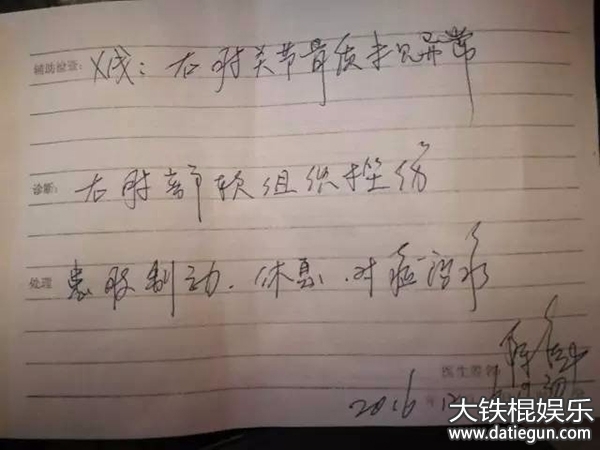 辅助检查: X线: 右肘关节骨质未见异常
诊断: 右肘部软组织挫伤
处理 患肢制动. 休息. 对症治疗
医生签名
2016年12
大铁棍娱乐
www.datiegun.com